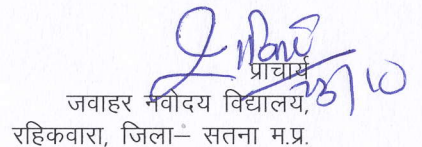 प्राचार्य
जवाहर नवोदय विद्यालय,
रहिकवारा, जिला– सतना म.प्र.